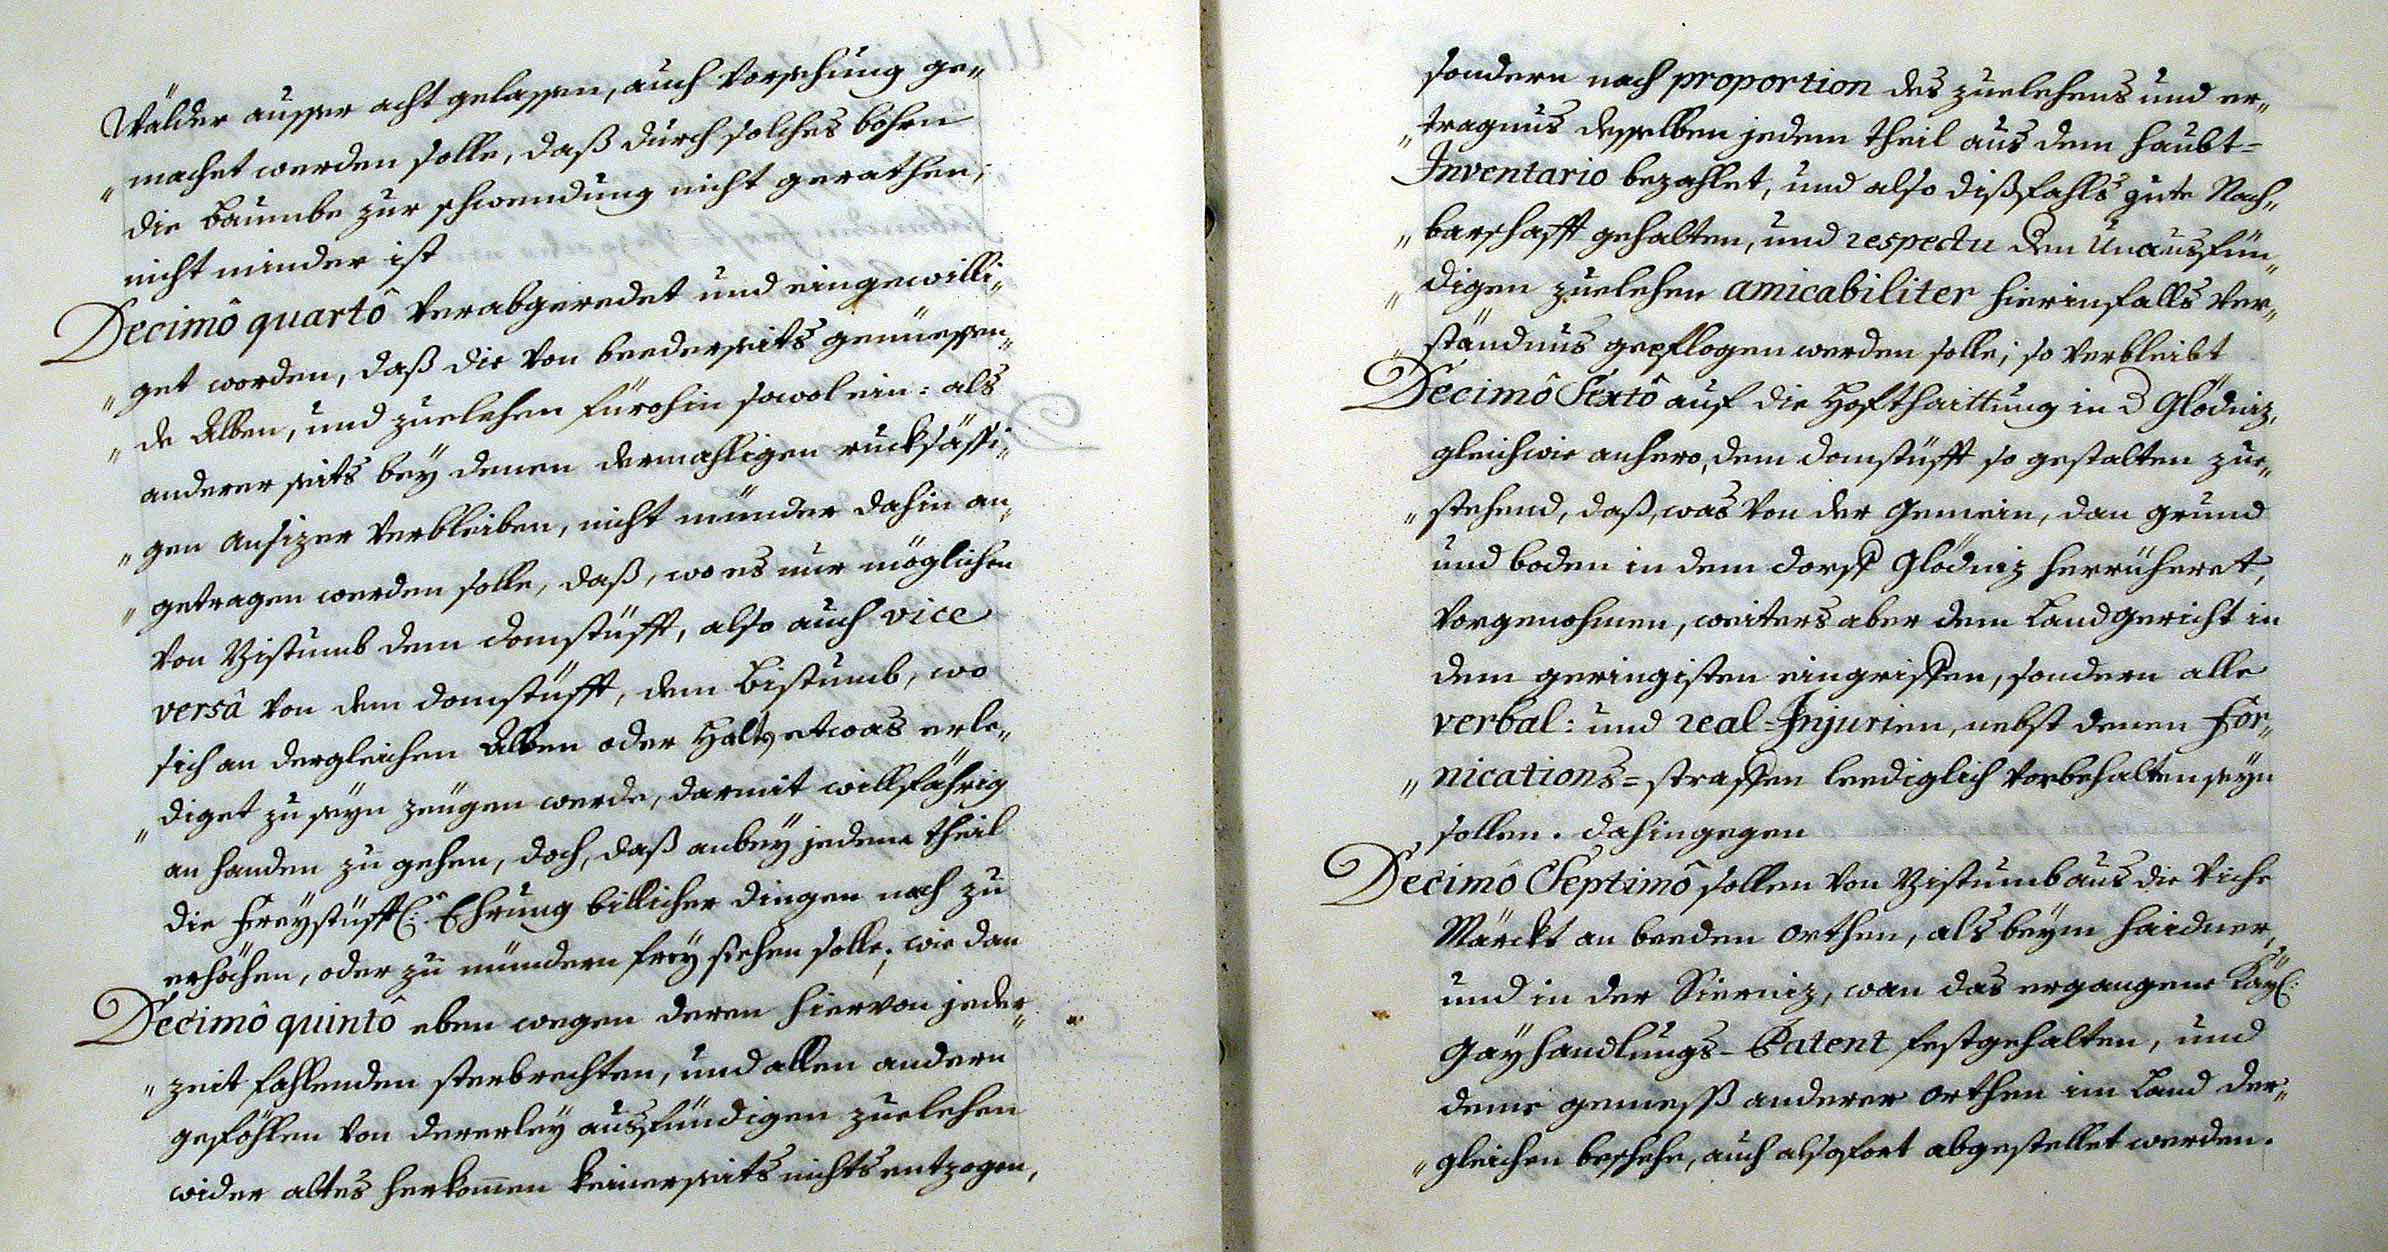 Wälder ausser acht gelassen, auch vorsehung ge„
„machet werden solle, daß durch solches bohrn
die Baumbe zur schwendung nicht gerathen,
nicht minder ist
Decimô quartô verabgeredet und eingewilli„
„get worden, daß die von beederseits genüessen„
„de Alben, und zuelehen fürohin sowol ein: als
anderer seits beÿ denen dermahligen rucksässi„
„gen ansizer verbleiben, nicht münder dahin an„
„getragen werden solle, daß, wo es nur möglichen
von Bistumb dem domstüfft, also auch vice
versâ von dem domstüfft, dem Bistumb, wo
sich an dergleichen Alben oder Halt, etwas erle„
„diget zu seÿn zeügen werde, darmit willfährig
an handen zu gehen, doch, daß anbeÿ jedem theil
die Freÿstüfftl: Ehrung billicher dingen nach zu
erhöhen, oder zu mündern freÿ stehen solle; wie dan
Decimô quintô eben wegen deren hiervon jeder„
„zeit fahlenden sterbrechten, und allen andern
geföhlen von dererleÿ ausfündigen zuelehen
wider altes herkom̄en keinerseits nichts entzogen,
sondern nach proportion des zuelehens und er„
„tragnus desselben jedem theil aus dem haubt=
Inventario bezahlet, und also dißfahls gute Nach„
„barschafft gehalten, und respectu den Unausfün„
„digen zuelehen amicabiliter hierinfalls ver„
„ständnus gepflogen werden solle; so verbleibt
Decimô Sextô auf die Hofthaittung in d Glödniz,
gleichwie anhero, dem domstüfft so gestalten zue„
„stehend, daß, was von der Gemein, dan grund
und boden in dem dorff Glödniz herrüheret,
vorgenohmen, weiters aber dem Landgericht in
dem geringisten eingriffen, sondern alle
verbal: und real=Injurien, nebst denen For„
„nications=straffen lerdiglich vorbehalten seÿn
sollen. dahingegen
Decimô Septimô sollen von Bistumb aus die Viehe
Märckt an beeden orthen, als beÿm Haidner,
und in der Sierniz, wan das ergangene Kaÿl:
Gäÿhandlungs-Patent festgehalten, und
deme gemeß anderer orthen im Land der„
„gleichen beschehe, auch alsofort abgestellet werden.